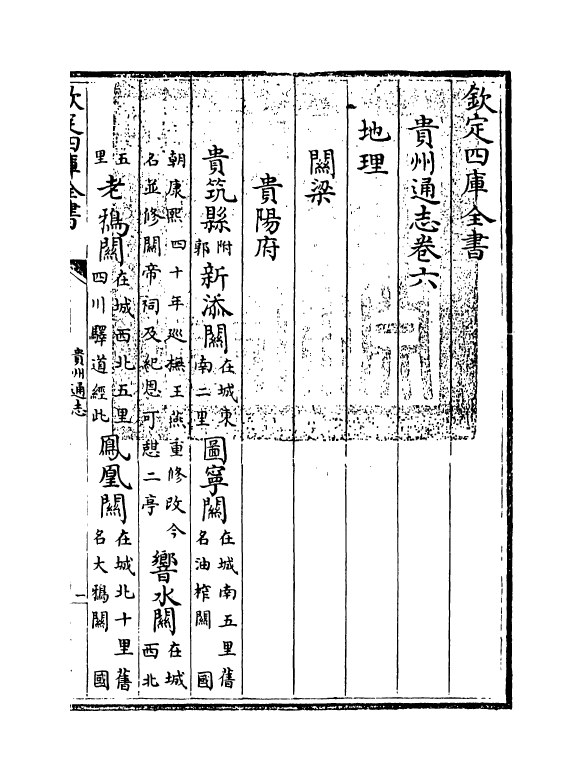 欽定四庫全書
貴州通志卷六
地理
關梁
貴陽府
貴筑縣附郭新添關在城東南二里圖寧關在城南五里舊名油榨關國
朝康熙四十年巡撫王燕重修改今名並修關帝祠及紀恩可憇二亭響水關在城西北
五里老鴉關在城西北五里四川驛道經此鳳凰關在城北十里舊名大鴉關國
欽定四庫全書
貴州通志
一